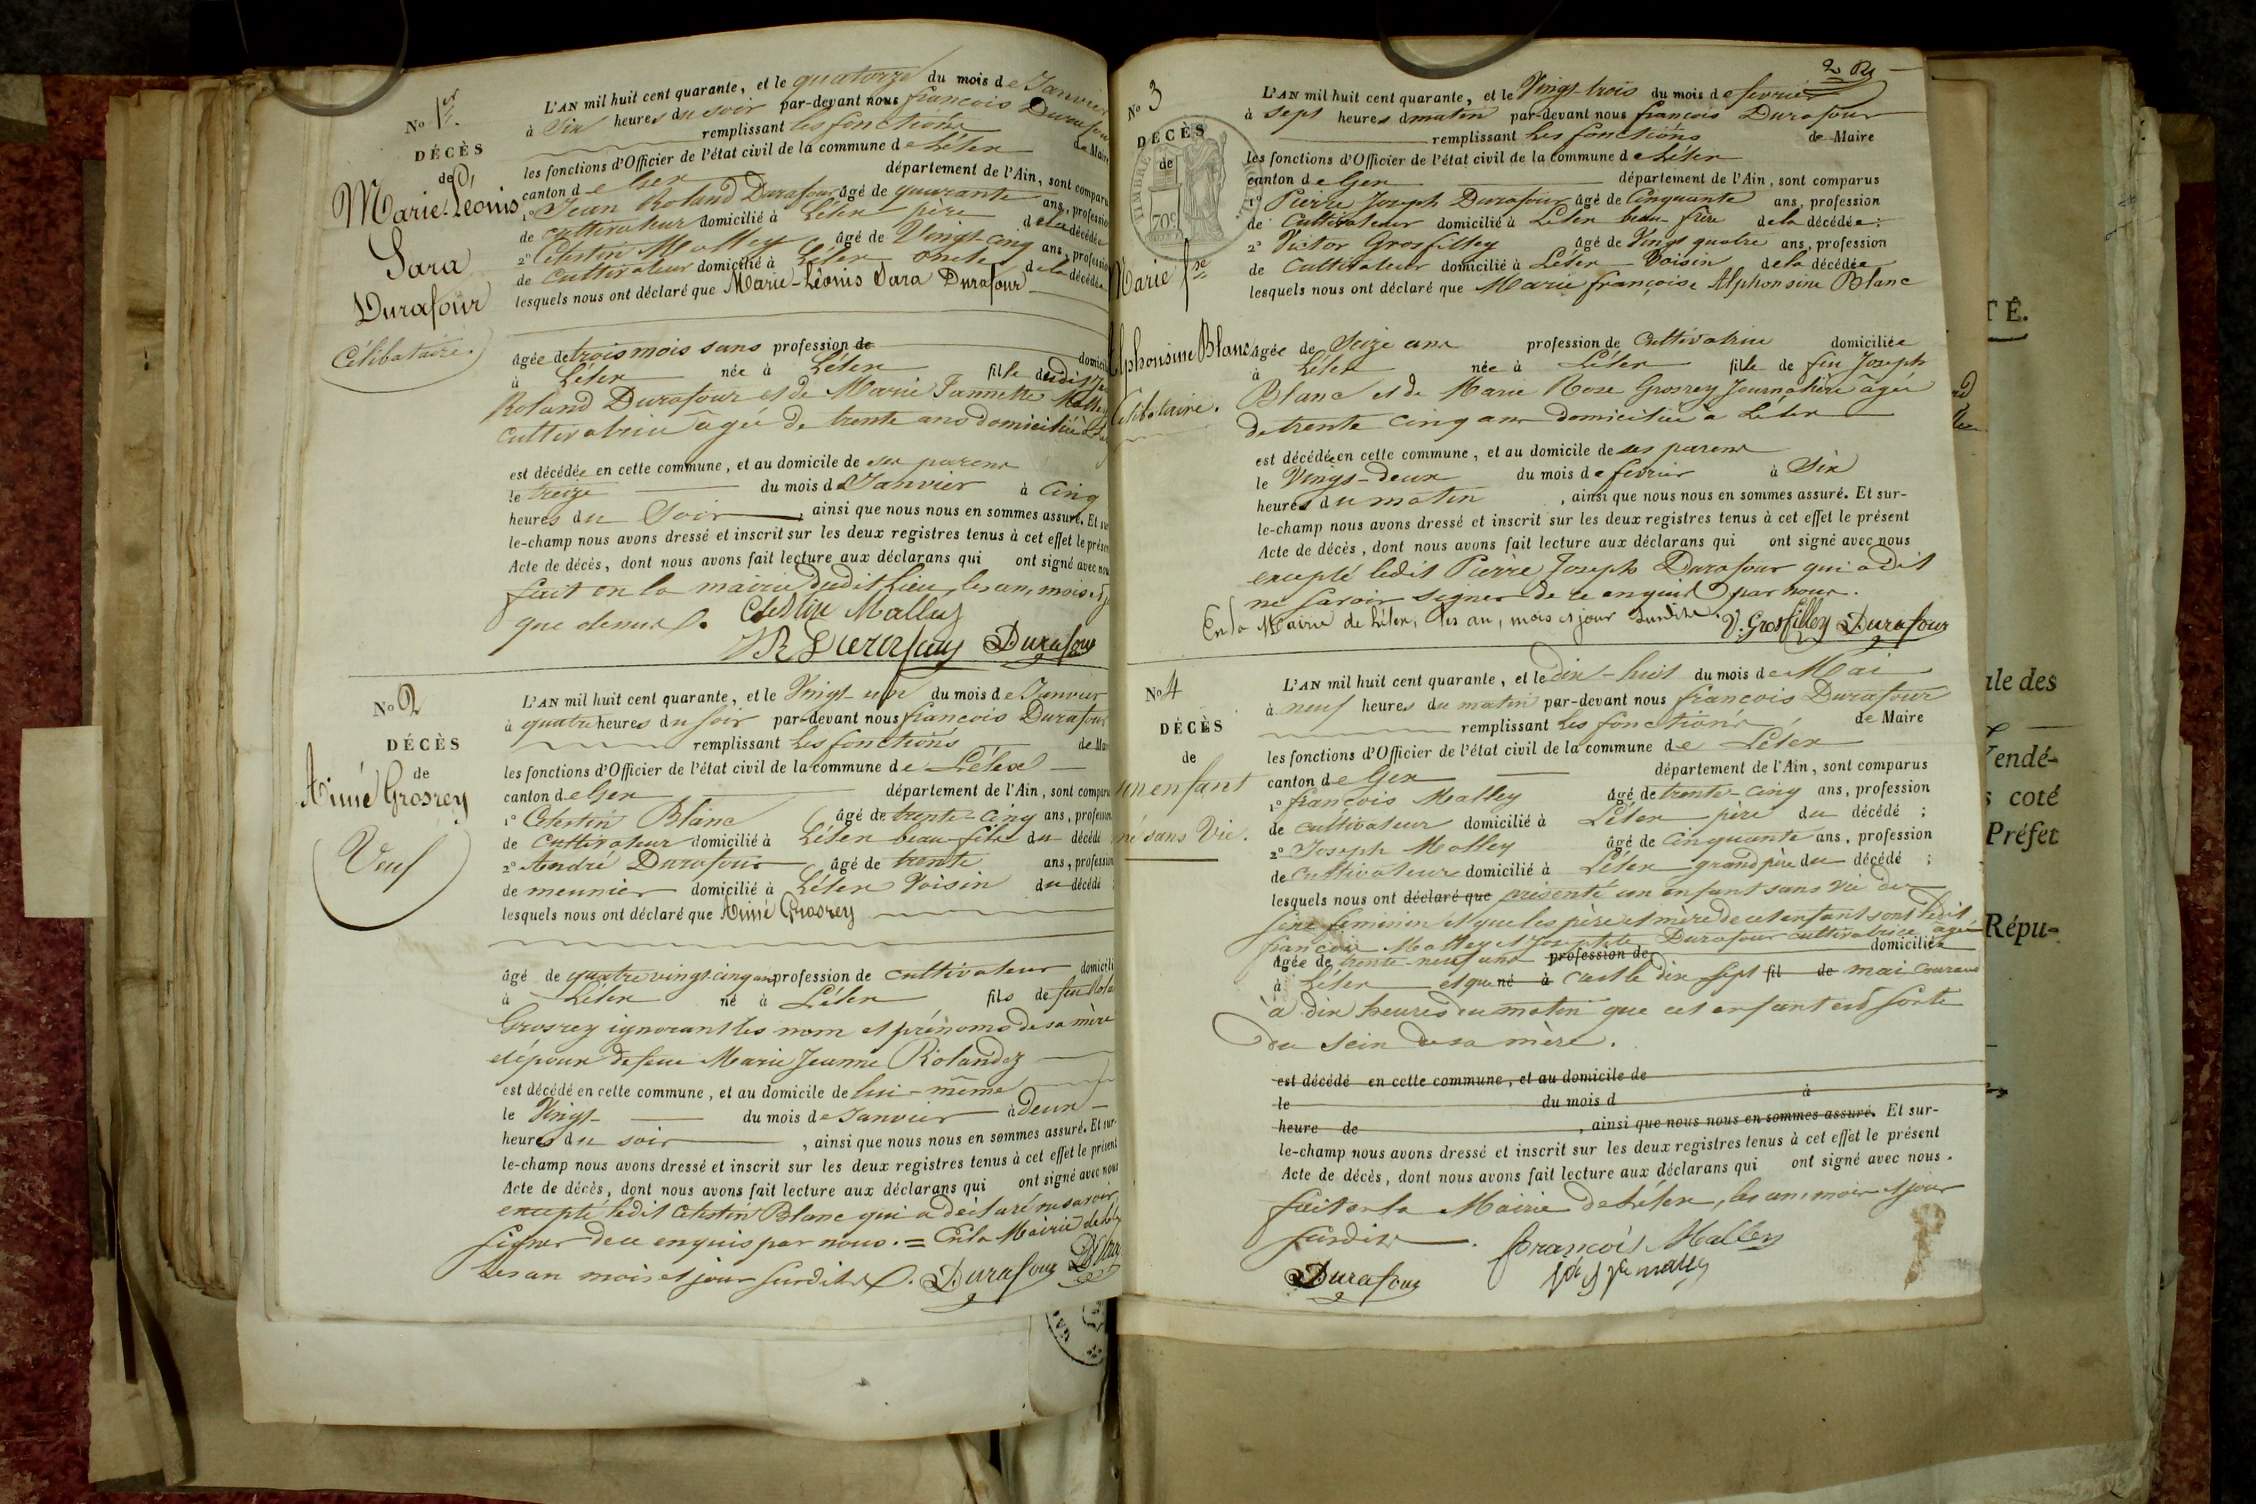 No 1er
DÉCÈS
de
Marie-Léonis
Sara
Durafour
Célibataire.
L'AN mil huit cent quarante, et le quatorze du mois de Janvier
à Six heures du soir par-devant nous francois Durafour
remplissant les fonctions de Maire
les fonctions d'Officier de l'état civil de la commune de Lélex
canton de Gex département de l'Ain, sont comparus
1° Jean Roland Durafour âgé de quarante ans, profession
de cultivateur domicilié à Lélex père de la décédée
2° Célestin Malley âgé de Vingt-cinq ans, profession
de cultivateur domicilié à Lélex oncle de la décédée
lesquels nous ont déclaré que Marie-Léonis Sara Durafour
âgée de trois mois sans profession de domicilié
à Lélex née à Lélex fille dudit Jean
Roland Durafour et de Marie Jannette Malley
cultivatrice âgée de trente ans domiciliée à Lélex
est décédée en cette commune, et au domicile de ses parens
le treize du mois de Janvier à Cinq
heures du Soir, ainsi que nous nous en sommes assuré. Et sur-
le-champ nous avons dressé et inscrit sur les deux registres tenus à cet effet le présent
Acte de décès, dont nous avons fait lecture aux déclarans qui ont signé avec nous
fait en la mairie dudit lieu, les an, mois et jour
que dessus. Célestin Malley
JR Durafour Durafour
No 2
DÉCÈS
de
Aimé Grosrey
Veuf
L'AN mil huit cent quarante, et le Vingt-un du mois de Janvier
à quatre heures du soir par-devant nous francois Durafour
remplissant les fonctions de Maire
les fonctions d'Officier de l'état civil de la commune de Lélex
canton de Gex département de l'Ain, sont comparus
1° Célestin Blanc âgé de trente-cinq ans, profession
de cultivateur domicilié à Lélex beau-fils du décédé
2° André Durafour âgé de trente ans, profession
de meunier domicilié à Lélex Voisin du décédé
lesquels nous ont déclaré que Aimé Grosrey
âgé de quatre vingt-cinq ans profession de cultivateur domicilié
à Lélex né à Lélex fils de feu
Grosrey ignorant les nom et prénoms de sa mère
époux de feue Marie Jeanne Rolandez
est décédé en cette commune, et au domicile de lui-même
le Vingt du mois de Janvier à Deux
heures du soir, ainsi que nous nous en sommes assuré. Et sur-
le-champ nous avons dressé et inscrit sur les deux registres tenus à cet effet le présent
Acte de décès, dont nous avons fait lecture aux déclarans qui ont signé avec nous
excepté ledit Célestin Blanc qui a déclaré ne savoir
signer de ce enquis par nous. = En la Mairie de Lélex
les an mois et jour susdits. Durafour
2
No 3
DÉCÈS
de
TIMBRE ROYAL
70c
Marie fse
Alphonsine Blanc
Célibataire.
L'AN mil huit cent quarante, et le Vingt-trois du mois de fevrier
à sept heures d matin par-devant nous francois Durafour
remplissant les fonctions de Maire
les fonctions d'Officier de l'état civil de la commune de Lélex
canton de Gex département de l'Ain, sont comparus
1° Pierre Joseph Durafour âgé de Cinquante ans, profession
de Cultivateur domicilié à Lélex beau-frère de la décédée;
2° Victor Grosfilley âgé de Vingt quatre ans, profession
de Cultivateur domicilié à Lélex Voisin de la décédée
lesquels nous ont déclaré que Marie françoise Alphonsine Blanc
âgée de Seize ans profession de Cultivatrice domiciliée
à Lélex née à Lélex fille de feu Joseph
Blanc et de Marie Rose Grosrey Journalière âgée
de trente cinq ans domiciliée à Lélex
est décédée en cette commune, et au domicile de ses parens
le Vingt-deux du mois de fevrier à Six
heures du matin, ainsi que nous nous en sommes assuré. Et sur-
le-champ nous avons dressé et inscrit sur les deux registres tenus à cet effet le présent
Acte de décès, dont nous avons fait lecture aux déclarans qui ont signé avec nous
excepté ledit Pierre Joseph Durafour qui a dit
ne savoir signer de ce enquis par nous.
En la Mairie de Lélex, les an, mois et jour susdits. V. Grosfilley Durafour
No 4
DÉCÈS
de
un enfant
né sans Vie.
L'AN mil huit cent quarante, et le dix-huit du mois de Mai
à neuf heures du matin par-devant nous françois Durafour
remplissant les fonctions de Maire
les fonctions d'Officier de l'état civil de la commune de Lélex
canton de Gex département de l'Ain, sont comparus
1° françois Malley âgé de trente-cinq ans, profession
de cultivateur domicilié à Lélex père du décédé;
2° Joseph Malley âgé de Cinquante ans, profession
de Cultivateur domicilié à Lélex grand père du décédé;
lesquels nous ont déclaré que présenté un enfant sans vie du
sexe feminin et que les père et mère de cet enfant sont ledit
françois Malley et Josephte Durafour cultivatrice âgée
âgée de trente-neuf ans profession de domiciliée
à Lélex et que né à c'est le dix sept fil de mai courant
à dix heures du matin que cet enfant est sorti
du sein de sa mère.
est décédé en cette commune, et au domicile de
le du mois d à
heure de, ainsi que nous nous en sommes assuré. Et sur-
le-champ nous avons dressé et inscrit sur les deux registres tenus à cet effet le présent
Acte de décès, dont nous avons fait lecture aux déclarans qui ont signé avec nous.
fait en la Mairie de Lélex, les an, mois et jour
susdits. françois Malley
Durafour malley
TÉ.
ale des
Vendé-
s coté
Préfet
Répu-